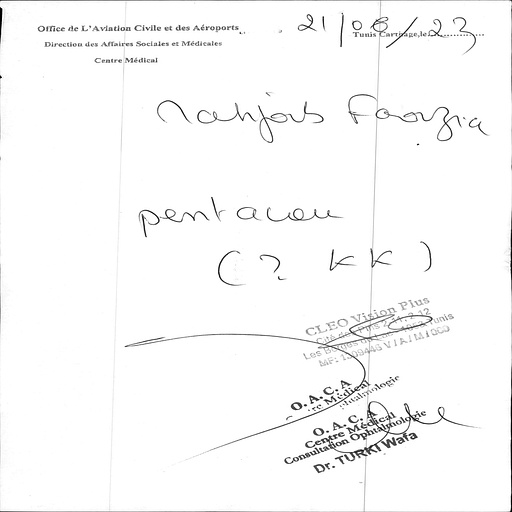 Office de L'Aviation Civile et des Aéroports
Direction des Affaires Sociales et Médicales
Centre Médical
Tunis Carthage, le 21/06/23
Mahjoub Faouzia
pentacam
(? KK)
CLEO Vision Plus
O. A. C. A
Médical
O. A. C. A
Centre Médical
Consultation Ophtalmologie
Dr. TURKI Wafa